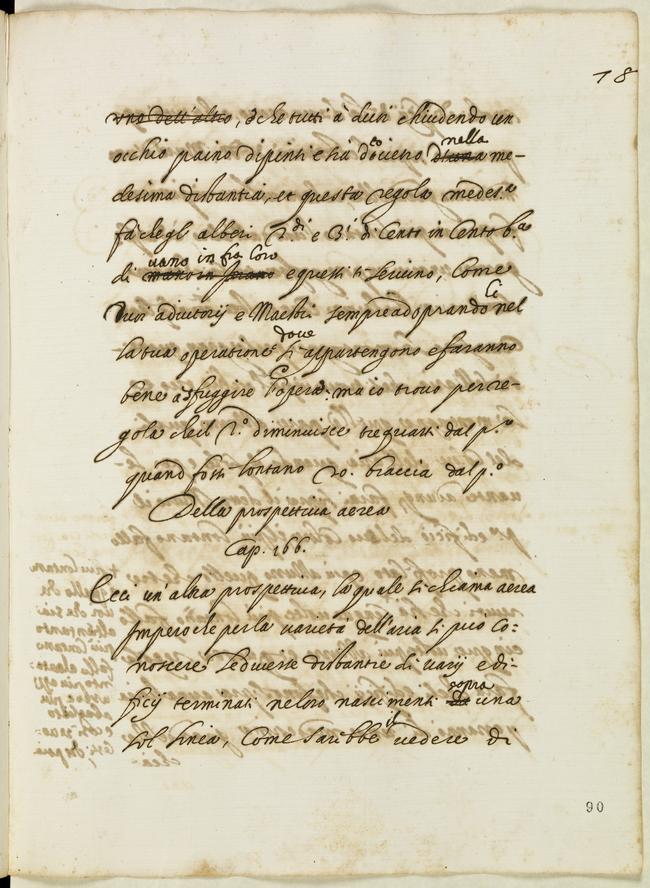 78
uno dell'altro, è che tutti à duri chiudendo un
occhio paino dipinti e sia d vetro nella me-
desima distantia, et questa regola medes.a
fà chegl alberi 2.di e 3.i di Cento in Cento b.a
di uano in fra loro e questi ti seruino, Come
tun' adiutorij e Maestri sempre adoprando li nel
la tua operatione doue ti appartengono e faranno
bene asfuggire l'opera: ma io trouo per re-
gola che il 2.o diminuisce tre quarti dal p.o
quand fossi lontano 20. braccia dal p.o
Della prospettiua aerea
Cap. 166.
Ecci un' altra prospettiua, la quale si chiama aerea
Imperoche per la varietà dell'aria si può co:
noscere le diuerse distantie di varij edi-
ficij terminati ne loro nascimenti sopra da una
sol linea, Come sarebbe il uedere di
90